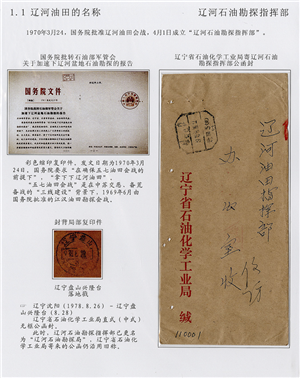 1.1 辽河油田的名称
辽河石油勘探指挥部
1970年3月24，国务院批准辽河油田会战，4月1日成立“辽河石油勘探指挥部”。
国务院批转石油部军管会
关于加速下辽河盆地石油勘探的报告
国务院文件
彩色缩印复印件，发文日期为1970年3月
24日，国务院要求“在确保五七油田会战的
前提下”，“拿下下辽河油田”。
“五七油田会战”是在中苏交恶、备荒
备战的“三线建设”背景下，1969年6月由
国务院批准的江汉油田会战。
封背局部复印件
辽宁盘山兴隆台
落地戳
辽宁沈阳（1978.8.26）- 辽宁盘
山兴隆台（8.28）
辽宁省石油化学工业局直式（中式）
无框公函封。
此时，辽河石油勘探指挥部已更名
为“辽河石油勘探局”，辽宁省石油化
学工业局寄来的公函仍沿用旧称。
辽宁省石油化学工业局寄辽河石油
勘探指挥部公函封
辽河油田指挥部
办公室 收
辽宁省石油化学工业局 缄
110001